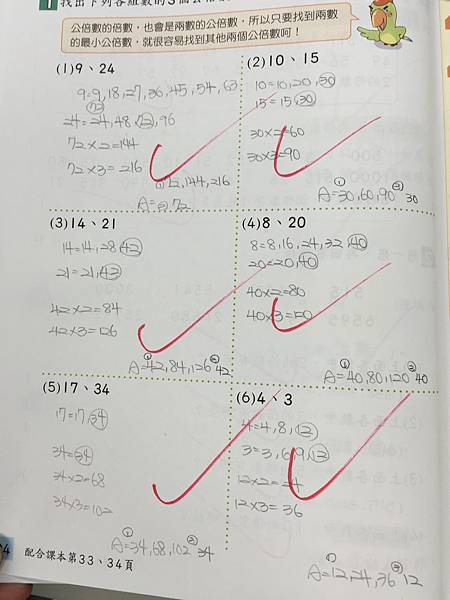 1 找出下列各組數的3個公倍數
公倍數的倍數,也會是兩數的公倍數,所以只要找到兩數
的最小公倍數,就很容易找到其他兩個公倍數呵!
(1) 9、24
9=9,18,27,36,45,54,63
72
24=24,48,72,96
72×2=144
72×3=216
①72,144,216
A=②72
(2) 10、15
10=10,20,30
15=15,30
30×2=60
30×3=90
① ②
A=30,60,90 30
(3) 14、21
14=14,28,42
21=21,42
42×2=84
42×3=126
① ②
A=42,84,126 42
(4) 8、20
8=8,16,24,32,40
20=20,40
40×2=80
40×3=120
① ②
A=40,80,120 40
(5) 17、34
17=17,34
34=34
34×2=68
34×3=102
① ②
A=34,68,102 34
(6) 4、3
4=4,8,12
3=3,6,9,12
12×2=24
12×3=36
① ②
A=12,24,36 12
4 配合課本第33、34頁